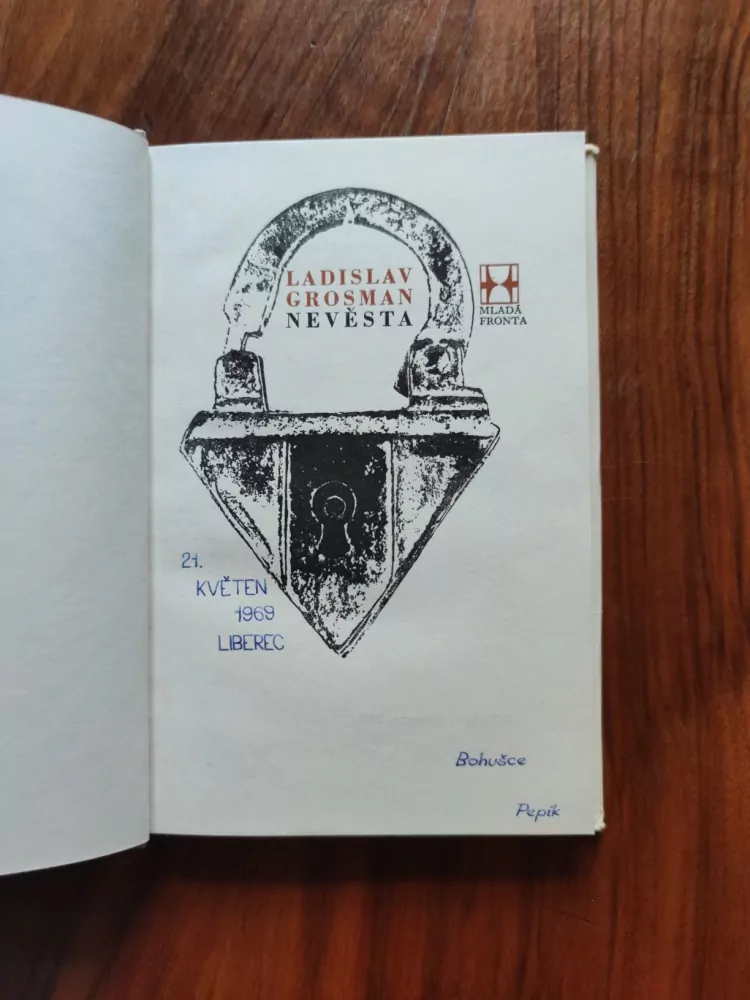 LADISLAV
GROSMAN
NEVĚSTA
MLADÁ
FRONTA
21.
KVĚTEN
1969
LIBEREC
Bohušce
Pepík